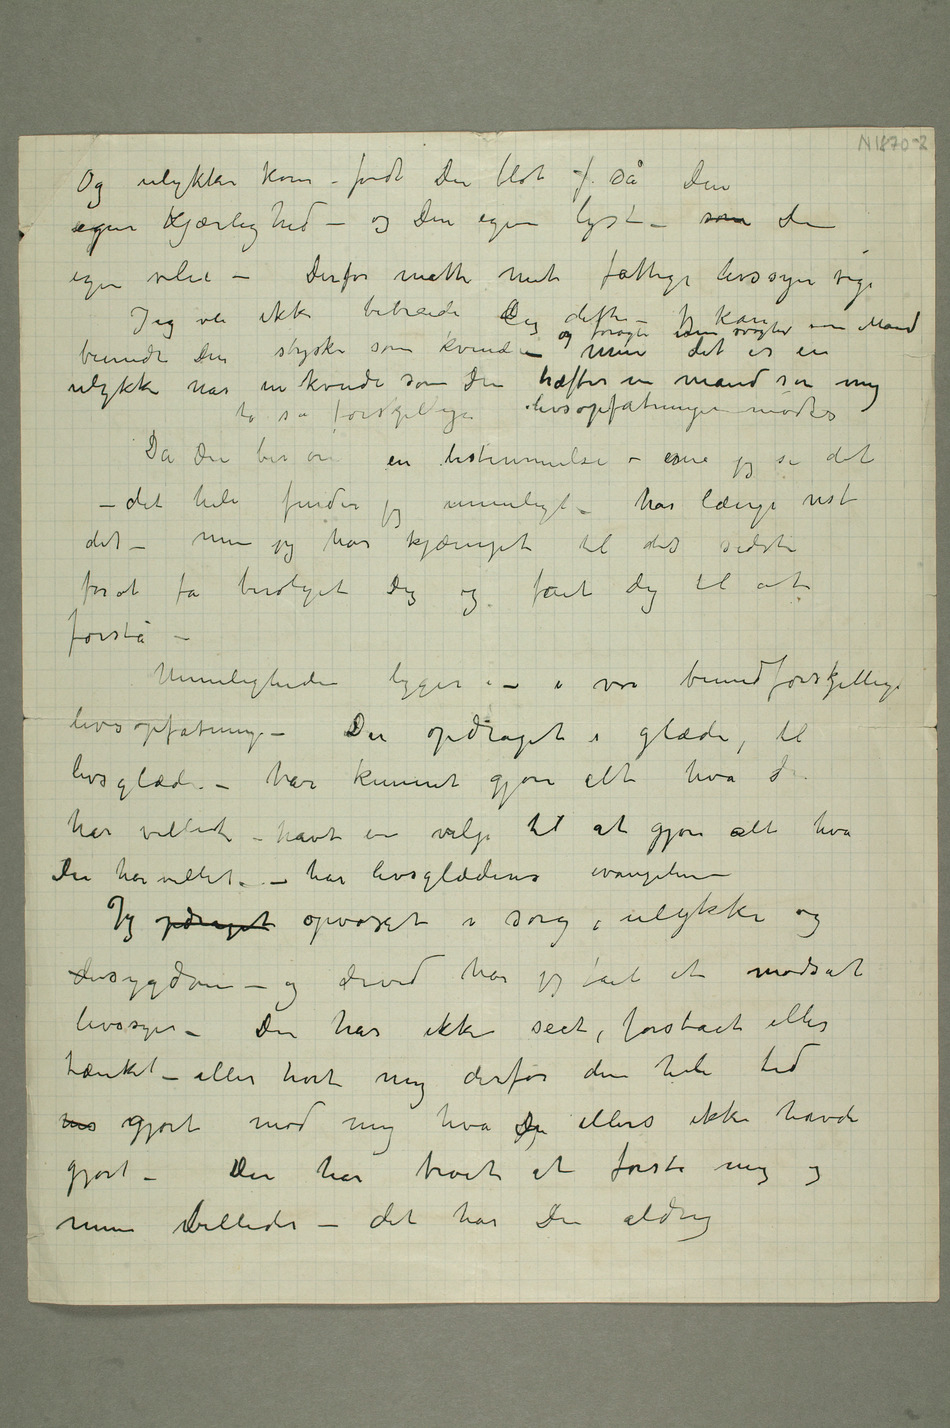 N 1870-2
Og ulykken kom – fordi Du blot så Din
egen Kjærlighed – og Din egen lyst – som Din
egen vilie – Derfor måtte mit fattige livssyn vige
Jeg vil ikke bebreide Dig dette – Jeg kan
og som en Mand
beundre Din styrke som kvinde – men det er en
ulykke når en kvinde som Du træffer en mand som mig
to så forskjellige livsopfatninger mødtes
Da Du ber om en bestemmelse – evne jeg se det
– det hele finder jeg umuligt – har længe vist
det – men jeg har kjæmpet til det sidste
forat få beroliget Dig og fået Dig til at
forstå –
Umuligheden ligger i – i vor bundforskjellige
livsopfatning – Du opdraget i glæde, til
livsglæde – har kunnet gjøre alt hva du
har villet – havt en vilje til at gjøre alt hva
Du har villet – har livsglædens evangelium
Jeg opdraget opvoxet i sorg, ulykke og
sygdom – og derved har jeg fåt et modsat
livssyn – Du har ikke seet, forstået eller
tænkt – eller hørt mig derfor den hele tid
gjort mod mig hva Du ellers ikke havde
gjort – Du har troet at forstå mig og
mine billeder – det har Du aldrig